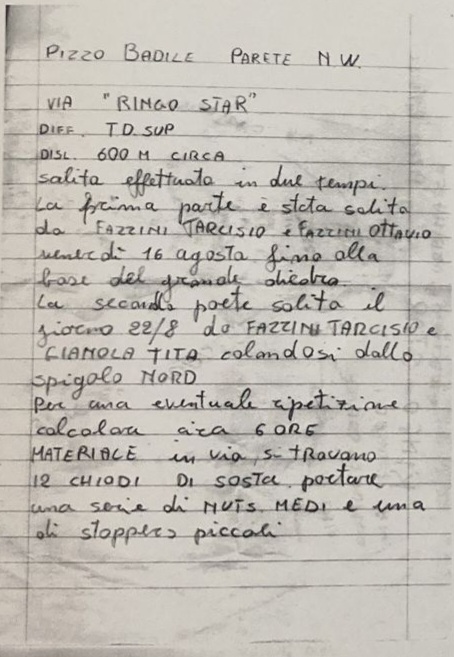 PIZZO BADILE PARETE N.W.
VIA "RINGO STAR"
DIFF. TD. SUP
DISL. 600 M CIRCA
salita effettuata in due tempi.
La prima parte è stata salita
da FAZZINI TARCISIO e FAZZINI OTTAVIO
venerdì 16 agosto fino alla
base del grande diedro.
La seconda parte salita il
giorno 22/8 da FAZZINI TARCISIO e
GIANOLA TITA calandosi dallo
spigolo NORD
Per una eventuale ripetizione
calcolare circa 6 ORE
MATERIALE in via si trovano
12 CHIODI DI SOSTA portare
una serie di NUTS MEDI e una
di stoppers piccoli